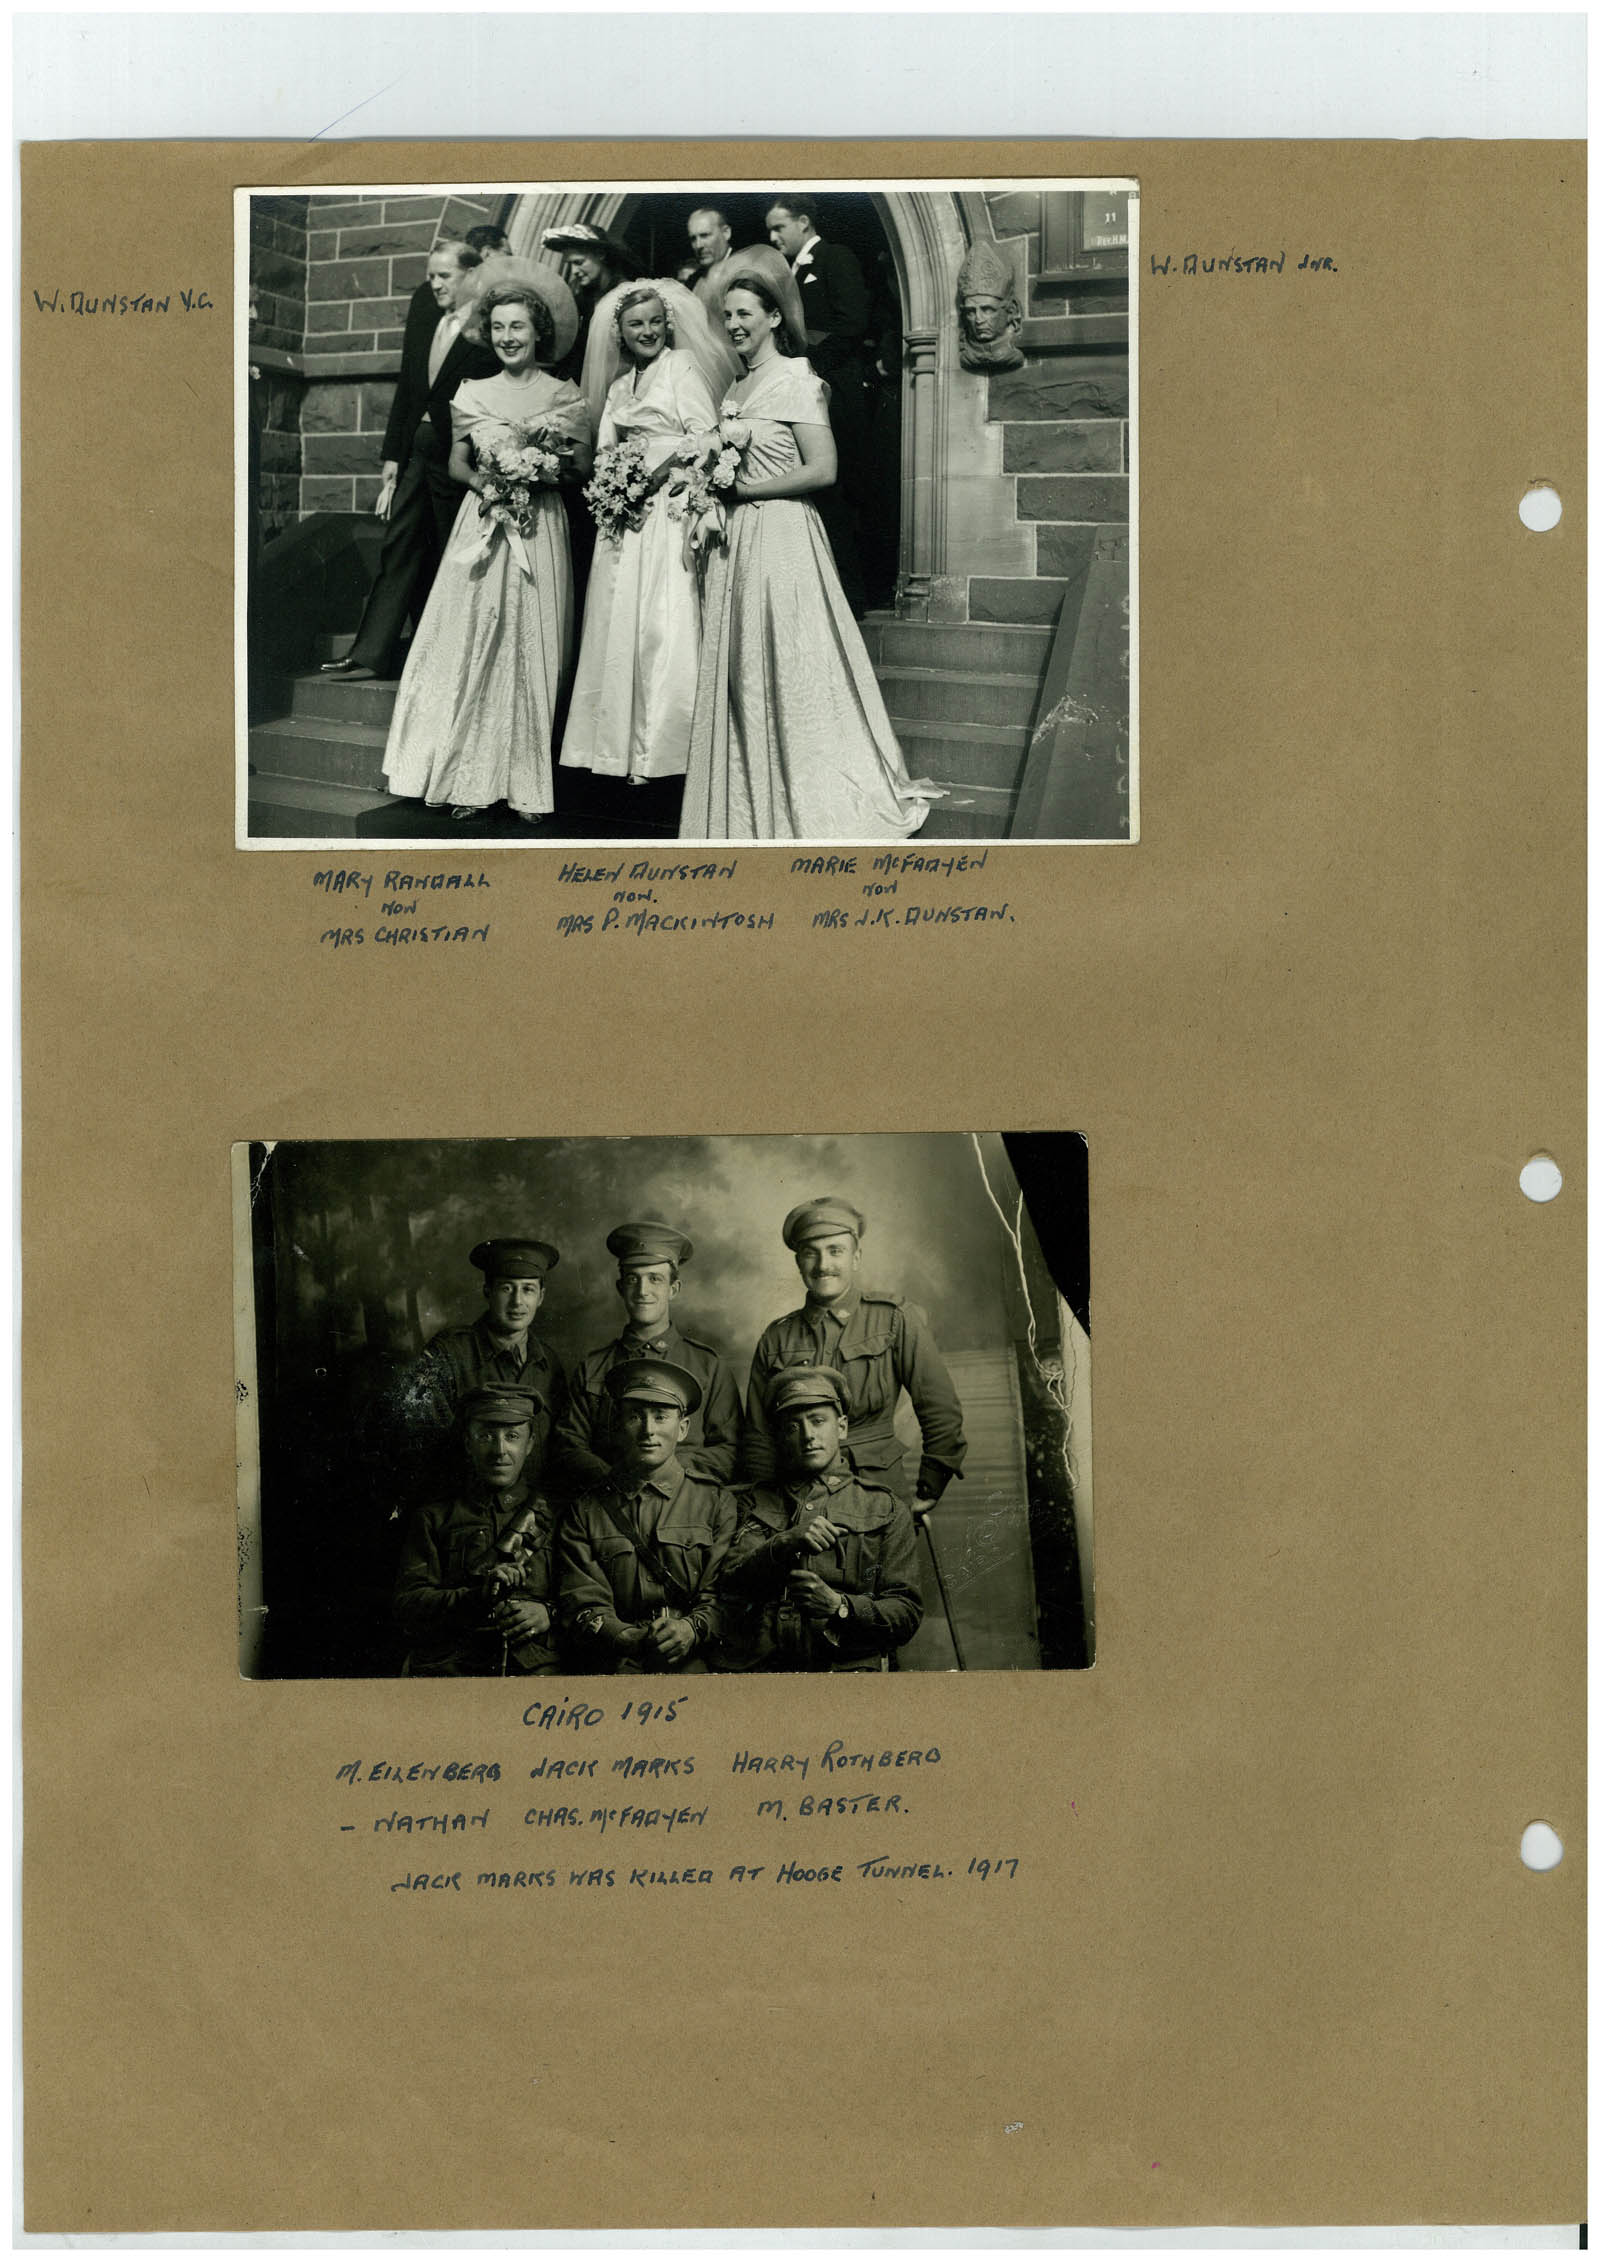 W. DUNSTAN V.C.
W. DUNSTAN JNR.
11
MARY RANDALL
NOW
MRS CHRISTIAN
HELEN DUNSTAN
NOW.
MRS P. MACKINTOSH
MARIE McFADYEN
NOW
MRS J.K. DUNSTAN.
CAIRO 1915
M. EILENBERG JACK MARKS HARRY ROTHBERG
– NATHAN CHAS. McFADYEN M. BASTER.
JACK MARKS WAS KILLED AT HOOGE TUNNEL. 1917